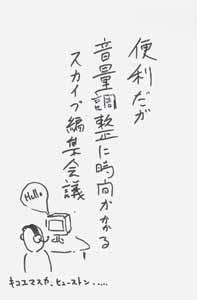 便利だが
音量調整に時間かかる
スカイプ編集会議
Hello
キコエマスカ、ヒューストン.....